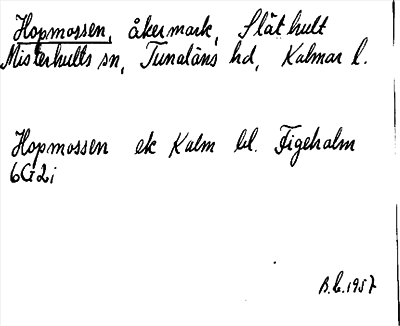 Hopmossen, åkermark, Släthult
Misterhults sn, Tunaläns hd, Kalmar l.
Hopmossen ek Kalm bl. Figeholm
6G2i
B.L. 1957